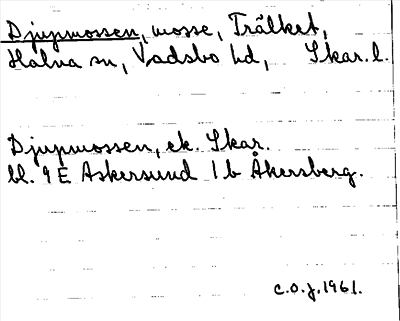 Djupmossen, mosse, Trälket,
Halna sn, Vadsbo hd, Skar. l.
Djupmossen, ek. Skar.
bl. 9 E Askersund 1 b Åkersberg.
c.o.j. 1961.